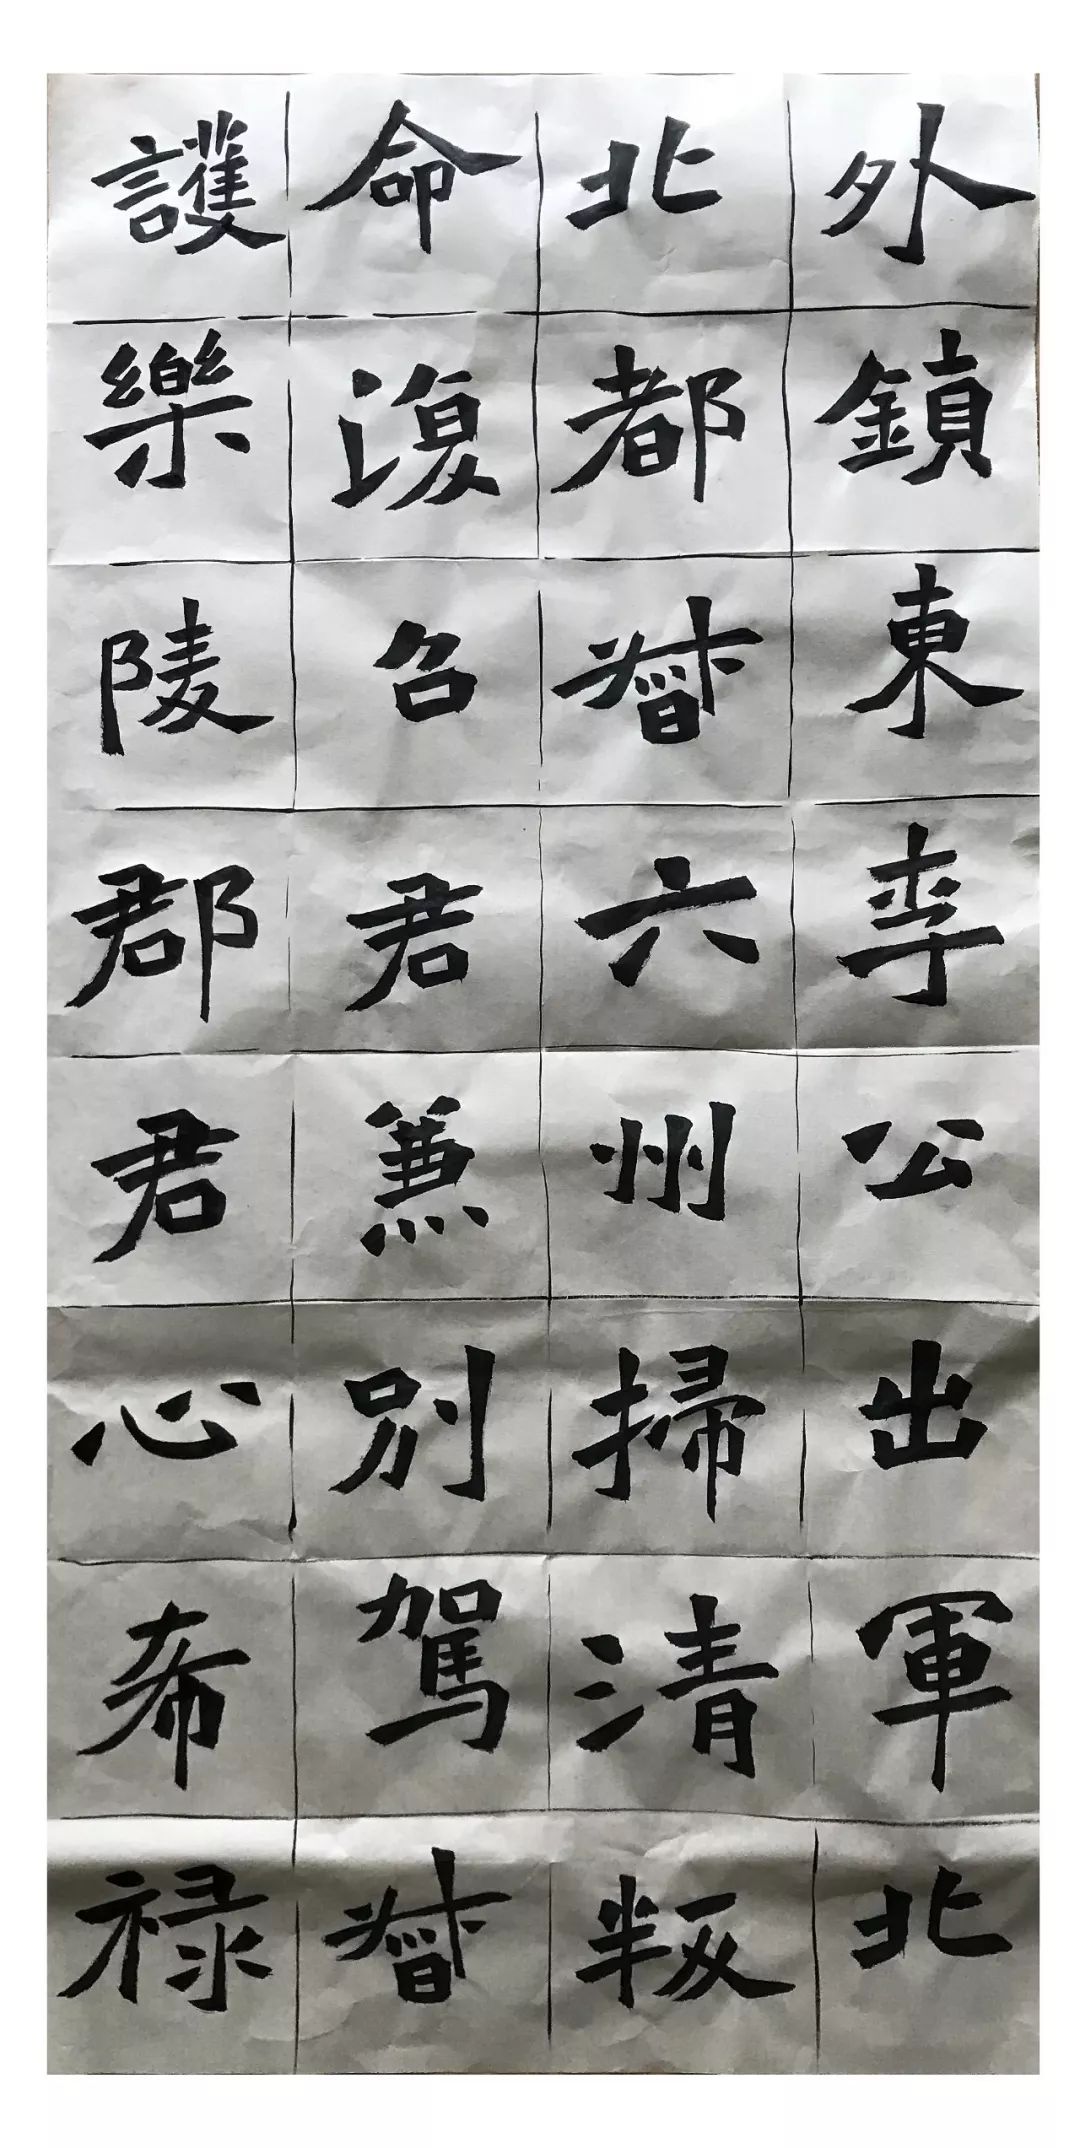 外鎮東李公出軍北
北都督六州掃清叛
命復召君兼別駕督
護樂陵郡君心希祿